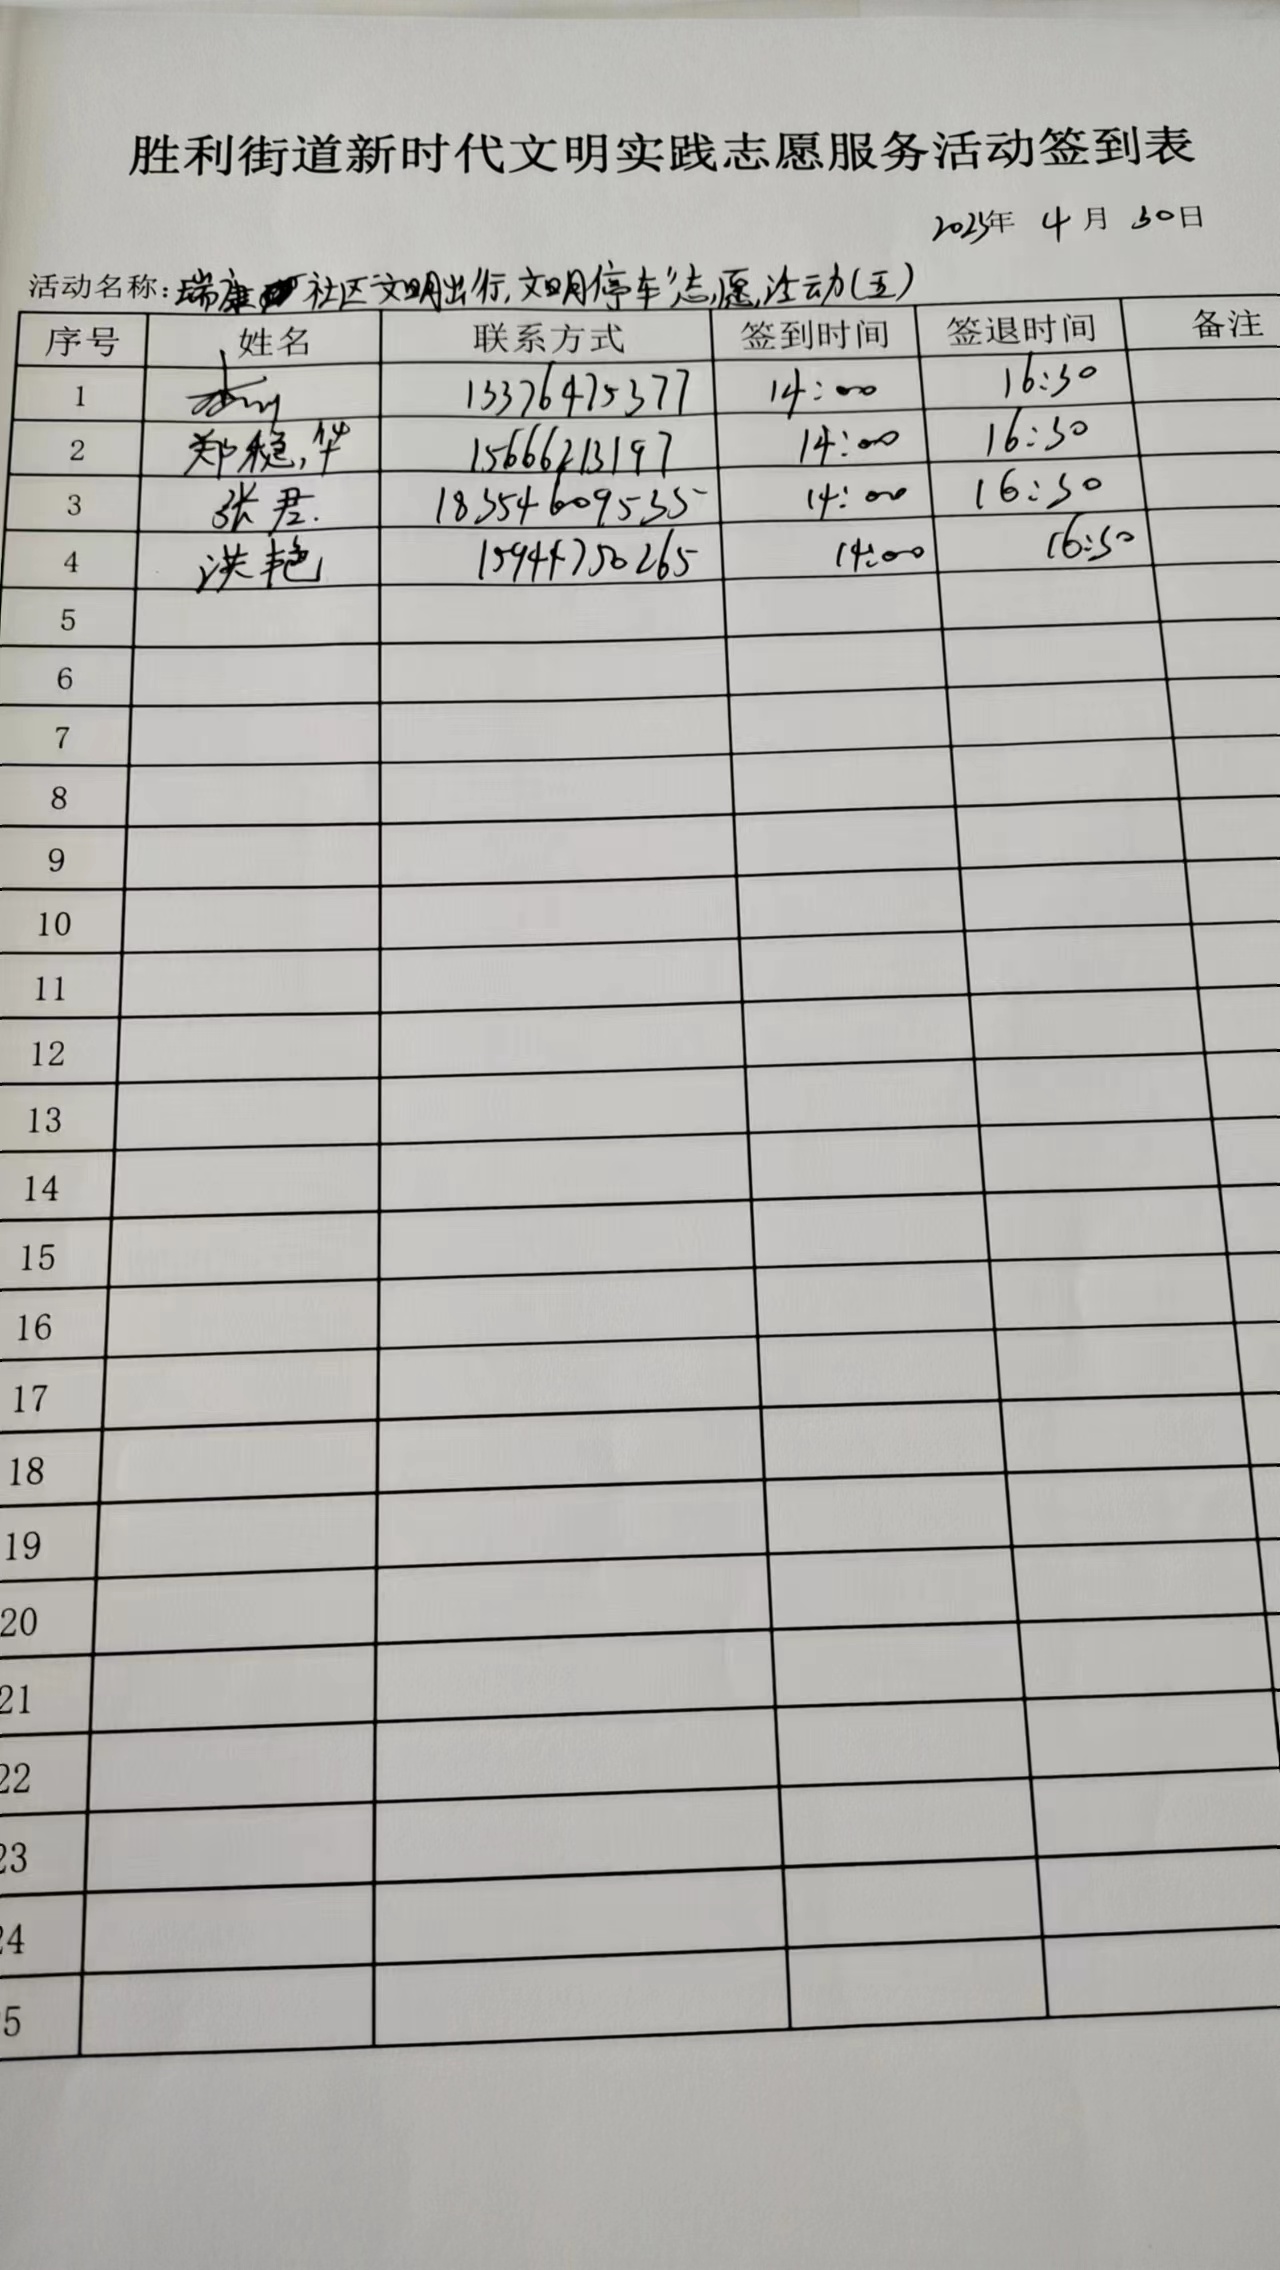 胜利街道新时代文明实践志愿服务活动签到表
2025年 4月 30日
活动名称：瑞康社区“文明出行，文明停车”志愿活动（五）
序号 姓名 联系方式 签到时间 签退时间 备注
1 13376475377 14:00 16:30
2 郑稳华 15666213197 14:00 16:30
3 张君 18354609535 14:00 16:30
4 洪艳 15944750265 14:00 16:30
5
6
7
8
9
10
11
12
13
14
15
16
17
18
19
20
21
22
23
24
5